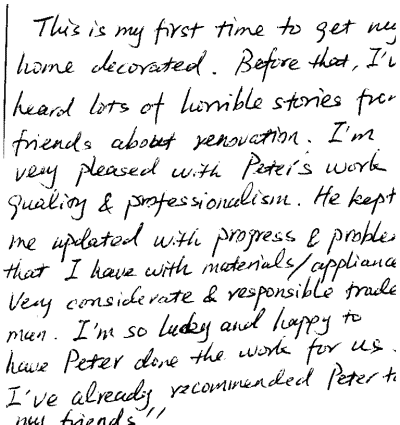 This is my first time to get my
home decorated. Before that, I'v
heard lots of horrible stories from
friends about renovation. I'm
very pleased with Peter's work
quality & professionalism. He kept
me updated with progress & proble
that I have with materials/appliance
Very considerate & responsible trade
man. I'm so lucky and happy to
have Peter done the work for us.
I've already recommended Peter to
my friends"